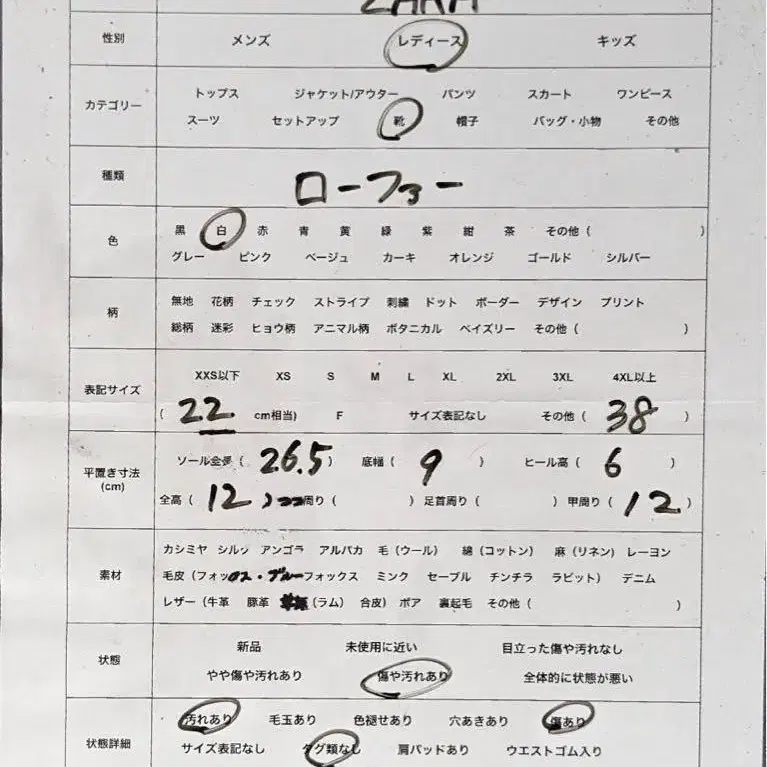 ZARA
性別 メンズ レディース キッズ
トップス ジャケット/アウター パンツ スカート ワンピース
カテゴリー
スーツ セットアップ 靴 帽子 バッグ・小物 その他
種類 ローファー
黒 白 赤 青 黄 緑 紫 紺 茶 その他 ( )
色
グレー ピンク ベージュ カーキ オレンジ ゴールド シルバー
無地 花柄 チェック ストライプ 刺繍 ドット ボーダー デザイン プリント
柄
総柄 迷彩 ヒョウ柄 アニマル柄 ボタニカル ペイズリー その他 ( )
XXS以下 XS S M L XL 2XL 3XL 4XL以上
表記サイズ
( 22 cm相当) F サイズ表記なし その他 ( 38 )
ソール全長 ( 26.5 ) 底幅 ( 9 ) ヒール高 ( 6 )
平置き寸法
(cm)
全高 ( 12 ) 周り ( ) 足首周り ( ) 甲周り ( 12 )
カシミヤ シルク アンゴラ アルパカ 毛 (ウール) 綿 (コットン) 麻 (リネン) レーヨン
素材
毛皮 (フォックス・ブルーフォックス ミンク セーブル チンチラ ラビット) デニム
レザー (牛革 豚革 (ラム) 合皮) ボア 裏起毛 その他 ( )
新品 未使用に近い 目立った傷や汚れなし
状態
やや傷や汚れあり 傷や汚れあり 全体的に状態が悪い
汚れあり 毛玉あり 色褪せあり 穴あきあり 傷あり
状態詳細
サイズ表記なし タグ類なし 肩パッドあり ウエストゴム入り